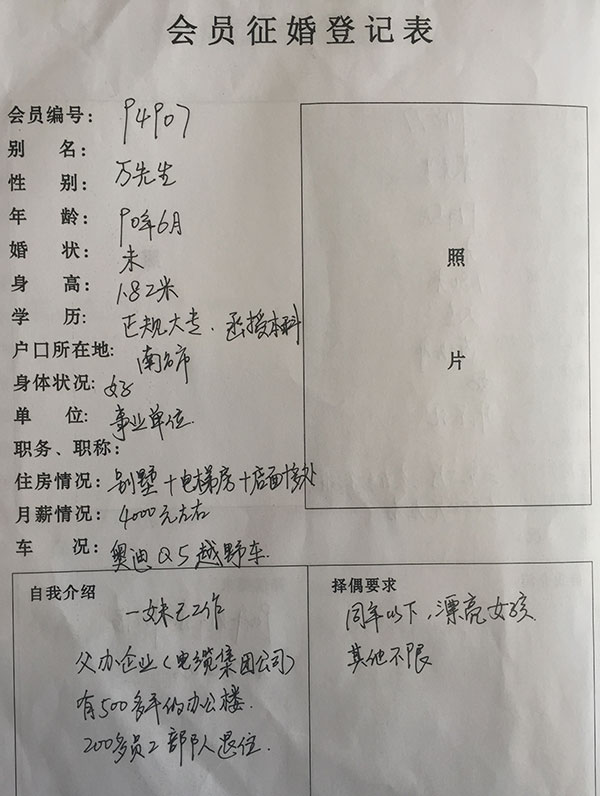 会员征婚登记表
会员编号: 94907
别 名:
性 别: 万先生
年 龄: 90年6月
婚 状: 未
身 高: 1.82米
学 历: 正规大专、函授本科
户口所在地: 南昌市
身体状况: 好
单 位: 事业单位.
职务、职称:
住房情况: 别墅+电梯房+店面多处
月薪情况: 4000元左右
车 况: 奥迪Q5越野车.
照
片
自我介绍
一妹已工作
父办企业(电缆集团公司)
有500多平的办公楼.
200多员工 部队退位.
择偶要求
同年以下,漂亮女孩.
其他不限